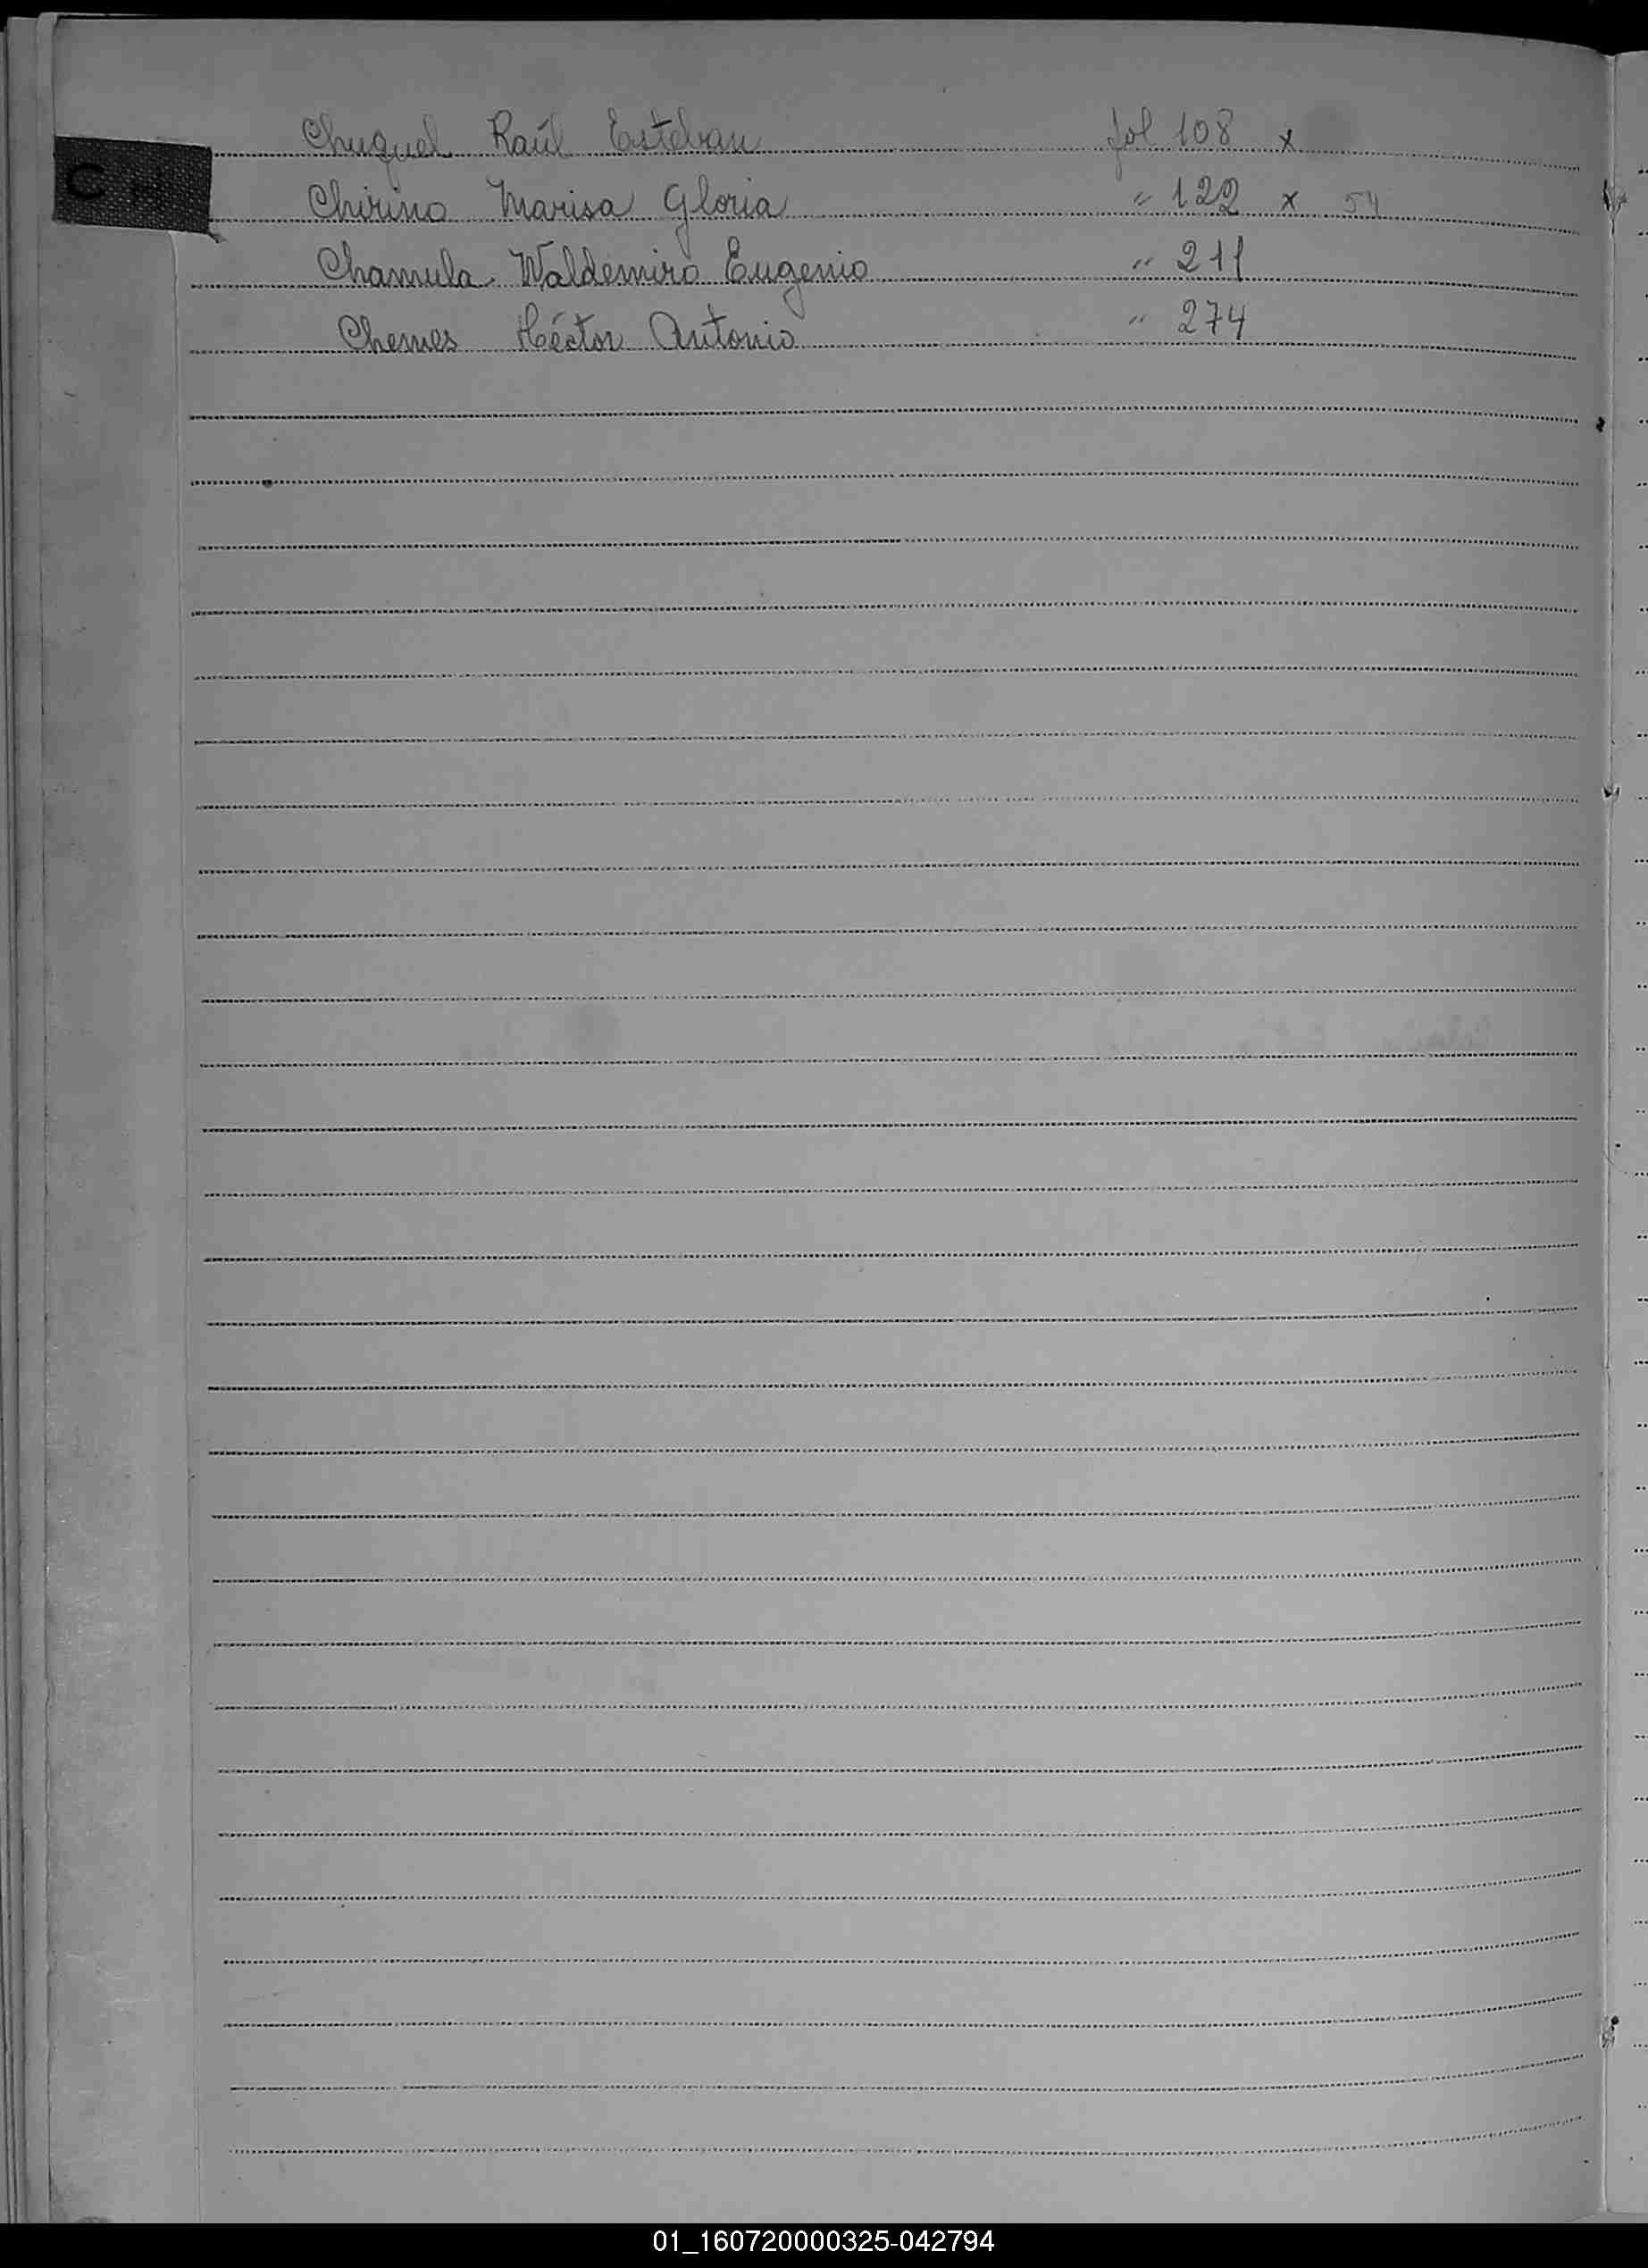 Chuquel Raúl Esteban fol 108 x
CH
Chirino Marisa Gloria " 122 x 54
Chamula Waldemiro Eugenio " 211
Chemes Héctor Antonio " 274
01_160720000325-042794